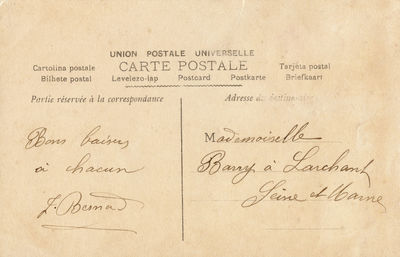 UNION POSTALE UNIVERSELLE
CARTE POSTALE
Cartolina postale
Tarjeta postal
Bilhete postal Levelezo-lap Postcard Postkarte Briefkaart
Partie réservée à la correspondance
Adresse du destinataire
Bons baisers
à chacun
J. Besnard
Mademoiselle
Barry à Larchant
Seine et Marne